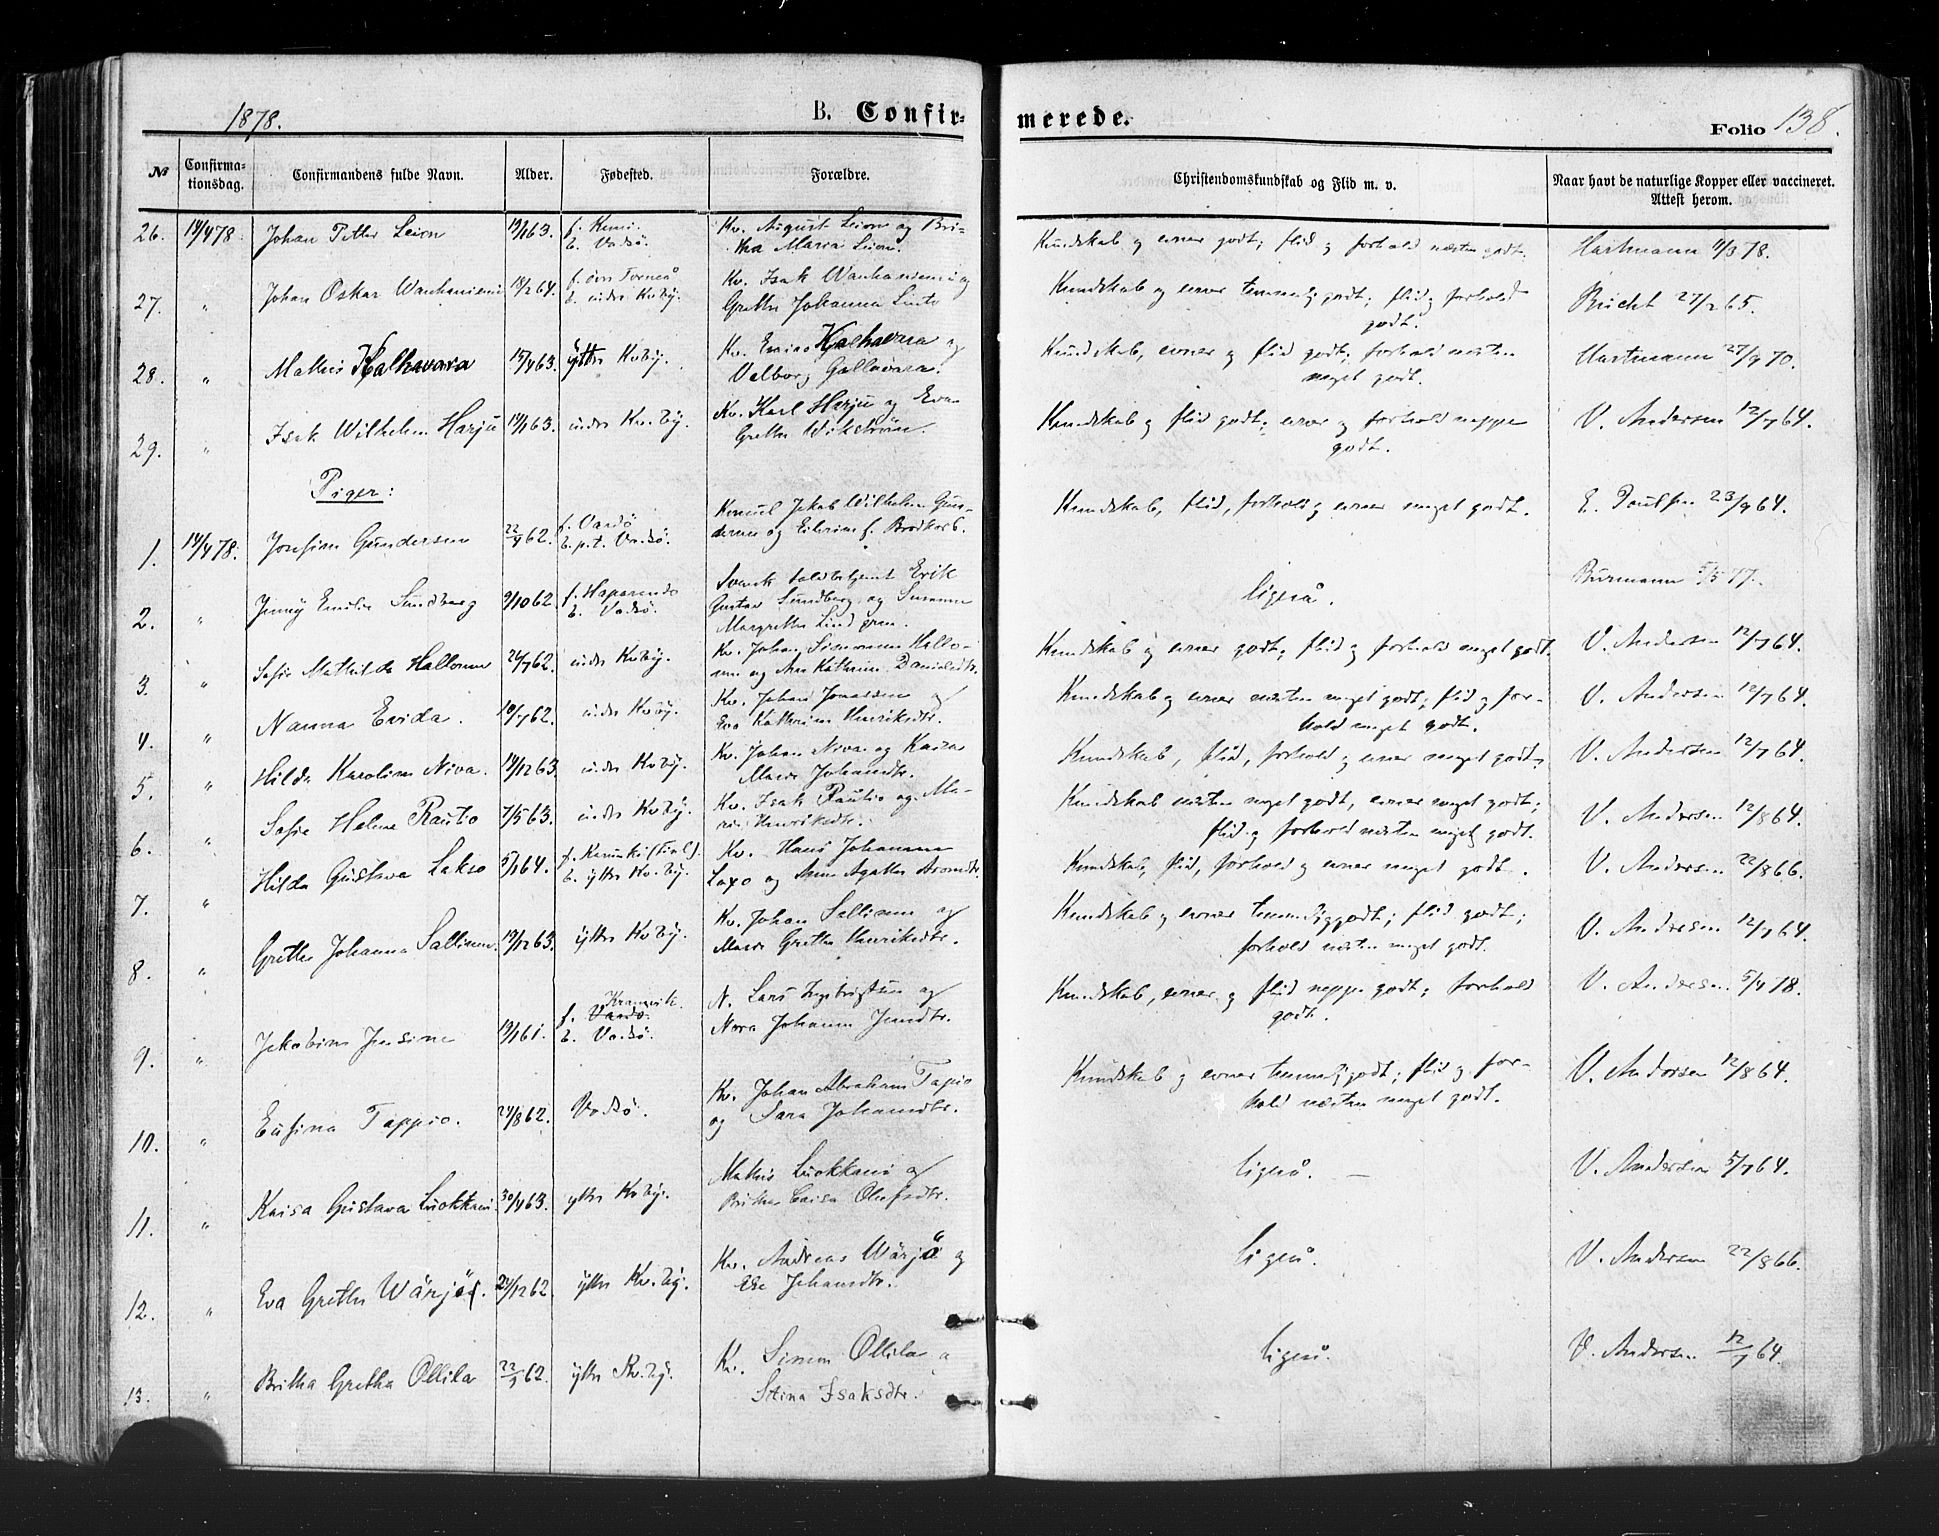 1878.
B. Confir-
merede.
Folio 138.
№
Confirma-
tionsdag.
Confirmandens fulde Navn.
Alder.
Fødested.
Forældre.
Christendomskundskab og Flid m. v.
Naar havt de naturlige Kopper eller vaccineret.
Attest herom.
26. 14/4 78. Johan Petter Leion 19/1 63. f. Kemi. b. Vadsö. Kv. August Leion og Bri-
tha Maria Leion.
Kundskab og evner godt; flid og forhold næsten godt. Hartmann 11/3 78.
27. " Johan Oskar Wanhaniemi 14/2 64. f. övre Torneå b. indre Kvby. Kv. Isak Wanhaniemi og
Grethe Johanna Linto
Kundskab og evner temmelig godt; flid og forhold
godt.
Bucht 27/2 65.
28. " Mathis Kalhavara 15/4 63. Yttre Kvby. Kv. Enias Kalhavara og
Valborg Gallavara.
Kundskab, evner og flid godt; forhold næsten
meget godt.
Hartmann 27/9 70.
29. " Isak Wilhelm Harju 14/1 63. indre Kv.by. Kv. Karl Harju og Eva
Grethe Wikström.
Kundskab og flid godt; evner og forhold neppe
godt.
V. Andersen 12/7 64.
Piger:
1. 14/4 78. Josefine Gundersen 22/9 62. f. Vardö b. p.t. Vadsö. Konsul Jakob Wilhelm Gun-
dersen og Eilerine f. Brodkorb.
Kundskab, flid, forhold og evner meget godt. E. Poulsen 23/9 64.
2. " Jenny Emilie Sundberg 9/10 62. f. Haparanda b. Vadsö. Svensk toldbetjent Erik
Gustav Sundberg og Susanne
Margrethe Lindgren.
ligeså. Burmann 5/5 77.
3. " Sofie Mathilde Hallonen 26/7 62. indre Kvby. Kv. Johan Simonsen Hallo-
nen og Ane Kathrine Danielsdtr.
Kundskab og evner godt; flid og forhold meget godt. V. Andersen 12/7 64.
4. " Nanna Evida. 10/7 62. indre Kvby. Kv. Johan Jonassen og
Eva Kathrine Henriksdtr.
Kundskab og evner næsten meget godt; flid og for-
hold meget godt.
V. Andersen 12/7 64.
5. " Hilda Karoline Niva. 14/12 63. indre Kvby. Kv. Johan Niva og Kaisa
Maria Johansdtr.
Kundskab, flid, forhold og evner meget godt. V. Andersen 12/7 64.
6. " Sofie Helene Rautio 7/5 63. indre Kvby. Kv. Isak Rautio og Ma-
ria Henriksdtr.
Kundskab næsten meget godt, evner meget godt;
flid og forhold næsten meget godt.
V. Andersen 12/8 64.
7. " Hilda Gustava Lakso 5/1 64. f. Karunki (Finl.) b. yttre Kv.by. Kv. Hans Johansen
Laxo og Anna Agatha Aronsdtr.
Kundskab, flid, forhold og evner meget godt. V. Andersen 22/8 66.
8. " Grethe Johanna Sallinen. 19/12 63. yttre Kvby. Kv. Johan Sallinen og
Maria Grethe Henriksdtr.
Kundskab og evner temmelig godt; flid godt;
forhold næsten meget godt.
V. Andersen 12/7 64.
9. " Jakobine Jensine 19/1 61. f. Kramvik. Vardö. b. Vadsö. N. Lars Ingebrigtsen og
Nora Johanne Jensdtr.
Kundskab, evner og flid neppe godt; forhold
godt.
V. Andersen 5/4 78.
10. " Eufina Tappio. 27/8 62. Vadsö. Kv. Johan Abraham Tapio
og Sara Johansdtr.
Kundskab og evner temmelig godt; flid og for-
hold næsten meget godt.
V. Andersen 12/8 64.
11. " Kaisa Gustava Luokkani 30/4 63. yttre Kvby. Mathis Luokkani og
Britha Caisa Olufsdtr.
ligeså. — V. Andersen 5/7 64.
12. " Eva Grethe Wärjö. 24/12 62. yttre Kv.by. Kv. Andreas Wärjö og
Else Johansdtr.
ligeså. V. Andersen 22/8 66.
13. " Britha Gretha Ollila 22/9 62. yttre Kv.by. Kv. Simon Ollila o
Stina Isaksdtr.
ligeså. V. Andersen 12/7 64.